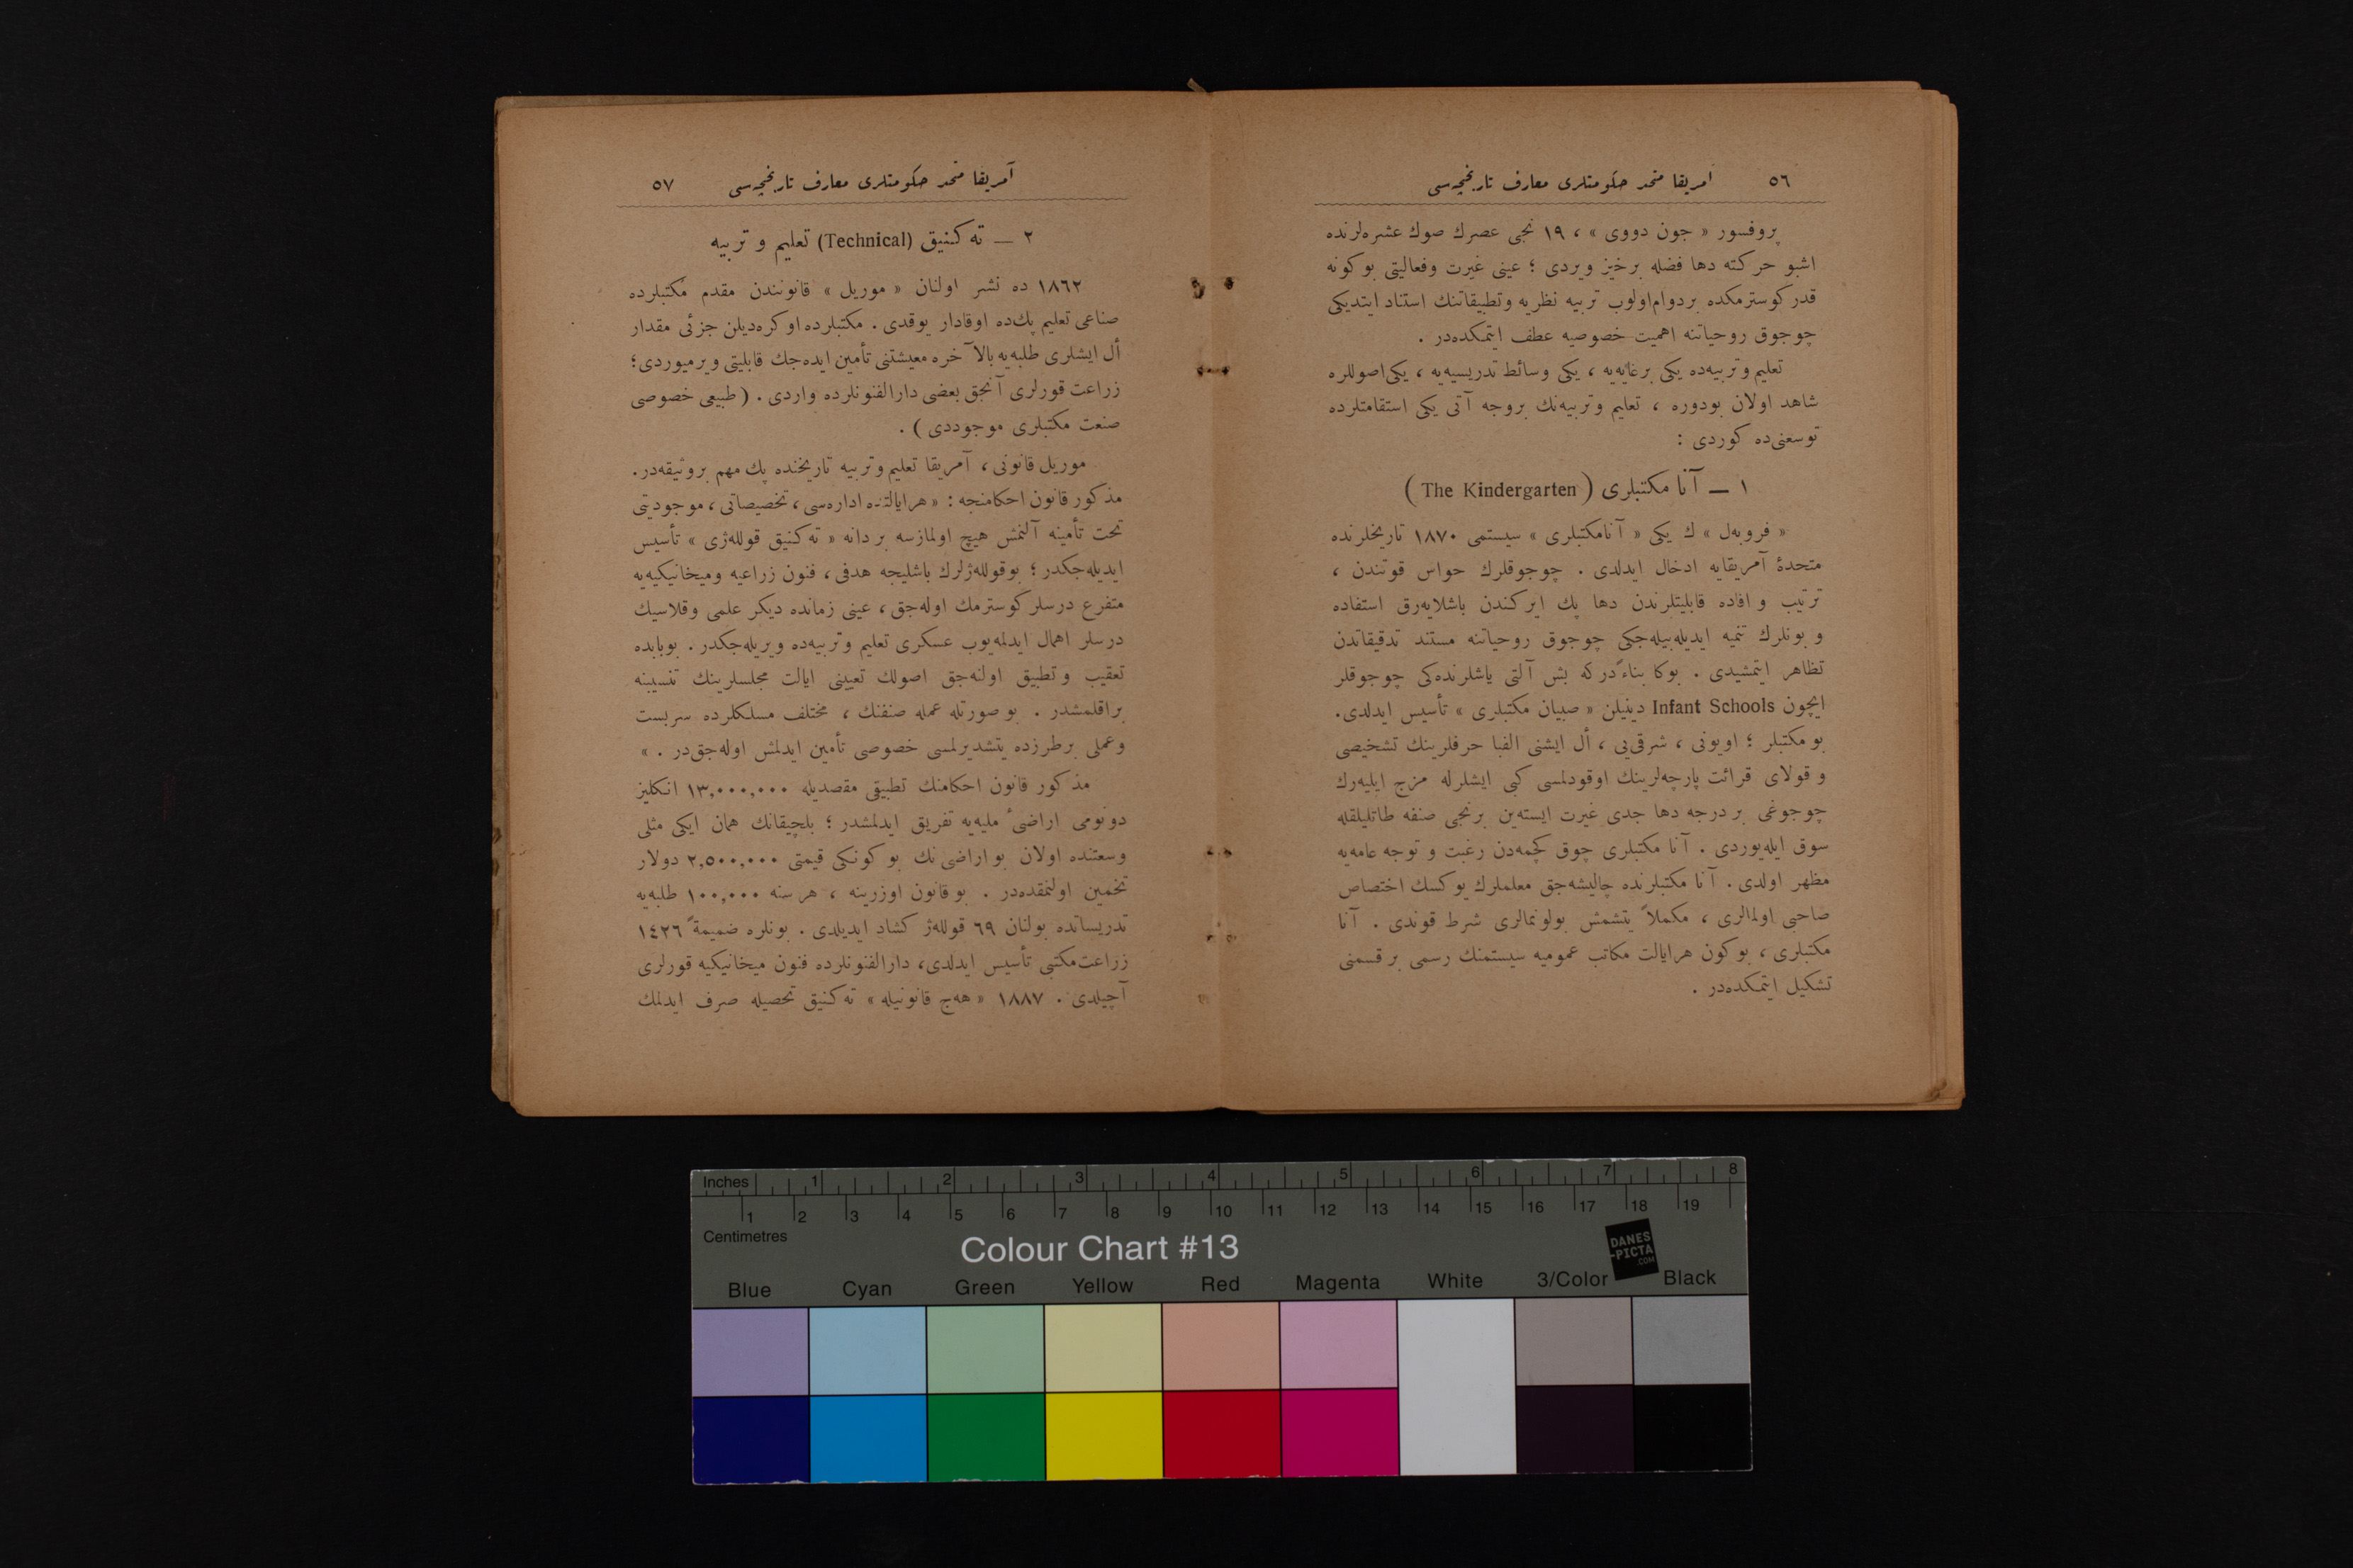 ٥٦ امريقا متحد حكومتلری معارف تاريخچه‌سی
پروفسور « جون دووی » ، ١٩ نجی عصرك صوك عشره‌لرنده
اشبو حركته دها فضله برخيز ويردی ؛ عينی غيرت وفعاليتی بوكونه
قدر كوسترمكده بردوام‌اولوب تربيه نظريه وتطبيقاتنك استناد ايتديكی
چوجوق روحياتنه اهميت خصوصيه عطف ايتمكده‌در .
تعليم وتربيه‌ده يكی برغايه‌يه ، يكی وسائط تدريسيه‌يه ، يكی‌اصوللره
شاهد اولان بودوره ، تعليم وتربيه‌نك بروجه آتی يكی استقامتلرده
توسعنی‌ده كوردی :
١ — آنا مكتبلری ( The Kindergarten )
« فروبه‌ل » ك يكی « آنامكتبلری » سيستمی ١٨٧٠ تاريخلرنده
متحدۀ آمريقايه ادخال ايدلدی . چوجوقلرك حواس قوتندن ،
ترتيب و افاده قابليتلرندن دها پك ايركندن باشلايه‌رق استفاده
و بونلرك تنميه ايديله‌بيله‌جكی چوجوق روحياتنه مستند تدقيقاتدن
تظاهر ايتمشيدی . بوكا بناءً دركه بش آلتی ياشلرنده‌كی چوجوقلر
ايچون Infant Schools دينيلن « صبيان مكتبلری » تأسيس ايدلدی.
بو مكتبلر ؛ اويونی ، شرقی‌يی ، أل ايشنی الفبا حرفلرينك تشخيصی
و قولای قرائت پارچه‌لرينك اوقودلمسی كبی ايشلرله مزج ايليه‌رك
چوجوغی بر درجه دها جدی غيرت ايسته‌ين برنجی صنفه طاتليلقله
سوق ايله‌يوردی . آنا مكتبلری چوق كچمه‌دن رغبت و توجه عامه‌يه
مظهر اولدی . آنا مكتبلرنده چاليشه‌جق معلملرك يوكسك اختصاص
صاحبی اولمالری ، مكملاً يتشمش بولونمالری شرط قوندی . آنا
مكتبلری ، بوكون هرايالت مكاتب عموميه سيستمنك رسمی بر قسمنی
تشكيل ايتمكده‌در .
آمريقا متحد حكومتلری معارف تاريخچه‌سی ٥٧
٢ — ته‌كنيق (Technical) تعليم و تربيه
١٨٦٢ ده نشر اولنان « موريل » قانونندن مقدم مكتبلرده
صناعی تعليم پك‌ده اوقادار يوقدی . مكتبلرده اوكره‌ديلن جزئی مقدار
أل ايشلری طلبه‌يه بالآخره معيشتنی تأمين ايده‌جك قابليتی ويرميوردی؛
زراعت قورلری آنجق بعضی دارالفنونلرده واردی . ( طبيعی خصوصی
صنعت مكتبلری موجوددی ) .
موريل قانونی ، آمريقا تعليم وتربيه تاريخنده پك مهم بروثيقه‌در.
مذكور قانون احكامنجه : « هرايالتده اداره‌سی ، تخصيصاتی ، موجوديتی
تحت تأمينه آلنمش هيچ اولمازسه بردانه « ته‌كنيق قولله‌ژی » تأسيس
ايديله‌جكدر ؛ بوقولله‌ژلرك باشليجه هدفی ، فنون زراعيه وميخانيكيه‌يه
متفرع درسلر كوسترمك اوله‌جق ، عينی زمانده ديكر علمی وقلاسيك
درسلر اهمال ايدلمه‌يوب عسكری تعليم وتربيه‌ده ويريله‌جكدر . بوبابده
تعقيب و تطبيق اولنه‌جق اصولك تعيينی ايالت مجلسلرينك تنسيبنه
براقلمشدر . بو صورتله عمله صنفنك ، مختلف مسلكلرده سربست
وعملی برطرزده يتشديرلمسی خصوصی تأمين ايدلمش اوله‌جق‌در . »
مذكور قانون احكامنك تطبيقی مقصديله ١٣,٠٠٠,٠٠٠ انكليز
دونومی اراضیٔ مليه‌يه تفريق ايدلمشدر ؛ بلچيقانك همان ايكی مثلی
وسعتنده اولان بو اراضی‌نك بوكونكی قيمتی ٢,٥٠٠,٠٠٠ دولار
تخمين اولنمقده‌در . بوقانون اوزرينه ، هرسنه ١٠٠,٠٠٠ طلبه‌يه
تدريساتده بولنان ٦٩ قولله‌ژ كشاد ايديلدی . بونلره ضميمةً ١٤٢٦
زراعت‌مكتبی تأسيس ايدلدی، دارالفنونلرده فنون ميخانيكيه قورلری
آچيلدی . ١٨٨٧ « هه‌چ قانونيله » ته‌كنيق تحصيله صرف ايدلمك
Inches 1 2 3 4 5 6 7 8
1 2 3 4 5 6 7 8 9 10 11 12 13 14 15 16 17 18 19
Centimetres
Colour Chart #13
DANES
-PICTA
.COM
Blue Cyan Green Yellow Red Magenta White 3/Color Black